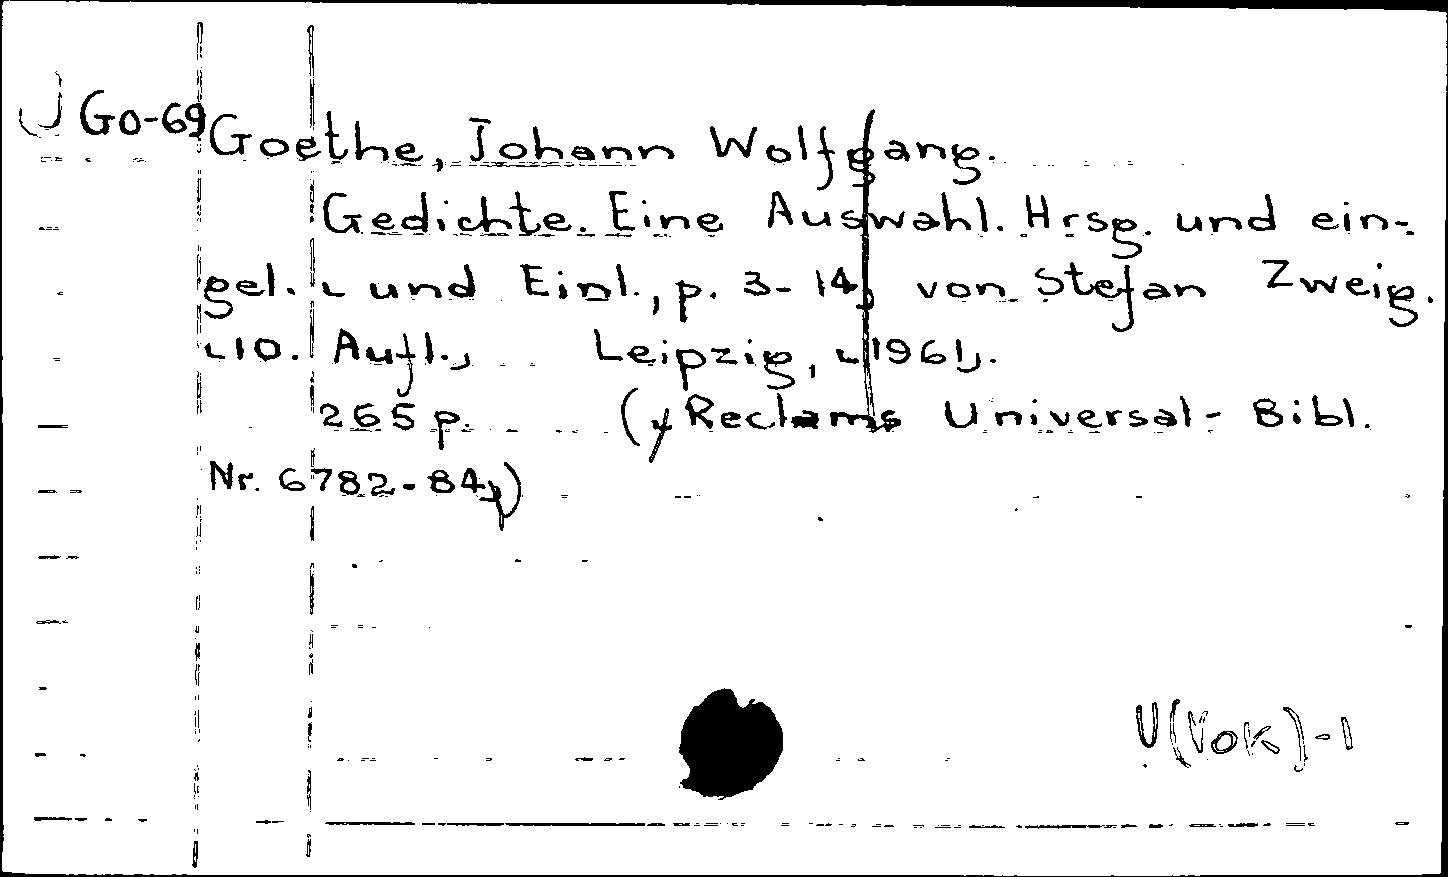 J Go-69
Goethe, Johann Wolfgang.
Gedichte. Eine Auswahl. Hrsg. und ein-
gel. [und Einl., p. 3-14] von Stefan Zweig.
[10. Aufl.] Leipzig, [1961].
265 p. (Reclams Universal-Bibl.
Nr. 6782-84)
U(VOK)-1